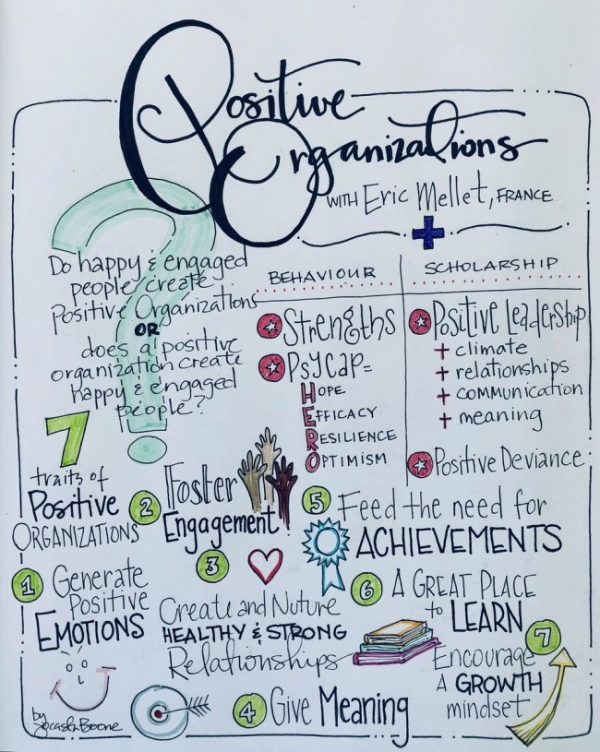 Positive
Organizations
WITH Eric Mellet, FRANCE
+
Do happy & engaged
people create
Positive Organizations
OR
does a positive
organization create
happy & engaged
people?
?
BEHAVIOUR
Strengths
PSYCAP=
HOPE
EFFICACY
RESILIENCE
OPTIMISM
SCHOLARSHIP
Positive Leadership
+ climate
+ relationships
+ communication
+ meaning
Positive Deviance
7
traits of
Positive
ORGANIZATIONS
1 Generate
Positive
EMOTIONS
2 Foster
Engagement!
3
Create and Nuture
HEALTHY & STRONG
Relationships
4 Give Meaning
5 Feed the need for
ACHIEVEMENTS
6 A GREAT PLACE
to LEARN
7
Encourage
A GROWTH
mindset
by
Boone